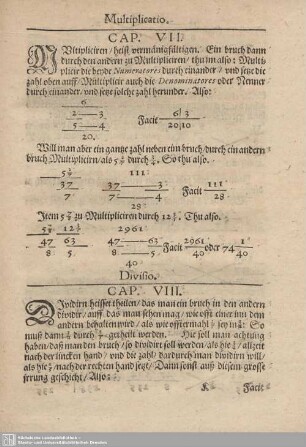 Multiplicatio.
CAP. VII.
MVltipliciren / heist vermannigfaltigen. Ein bruch dann
durch den andern zu Multipliciren / thu im also: Multi-
plicir die beyde Numeratores durch einander / und setze die
zahl oben auff / Multiplicir auch die Denominatores oder Nenner
durch einander / und setze solche zahl herunder. Also:
6
2 3 Facit 6 3
5 4 20 10
20.
Will man aber ein gantze zahl neben ein bruch / durch ein andern
bruch Multiplicirn / als 5 2/7 durch 3/4. So thu also.
111
37 37 3 Facit 111
7 7 4 28
28
Item zu Multipliciren durch 12 Thu also.
2961
47 63 47 63 Facit 2961 oder 74 1
8 5 8 5 40 40
40
Divisio.
CAP. VIII.
DIvidirn heisset theilen / das man ein bruch in den andern
dividir / auff das man sehen mag / wie offt einer inn dem
andern behalten wird / als wie offt ermahl sey in So
muß dann durch getheilt werden. Hie soll man achtung
haben / daß man den bruch / so dividirt soll werden / als hie allzeit
nach der lincken hand / und die zahl / dardurch man dividirn will /
als hie nach der rechten hand setzt / Dann sonst auß diesem grosse
serung geschicht / Also:
K Facit